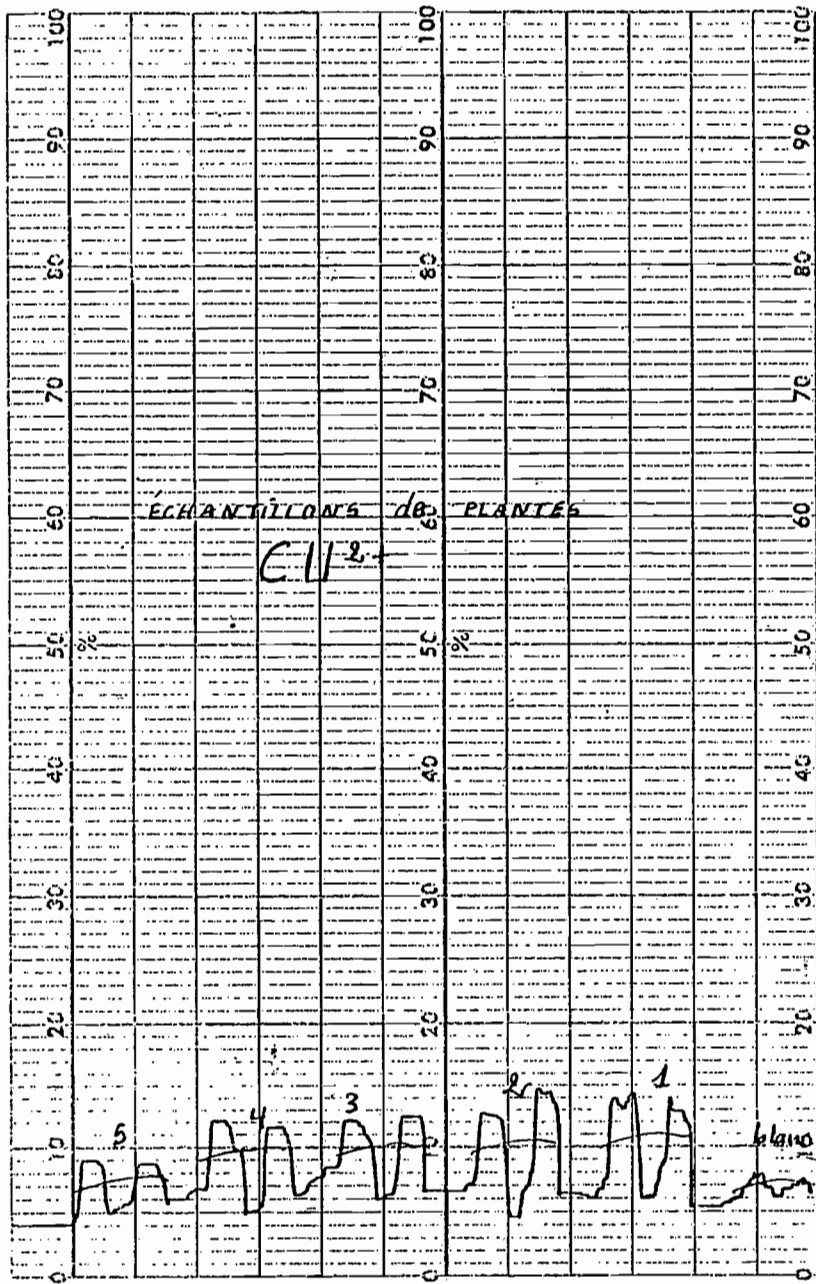 100 100 100
90 90 90
80 80 80
70 70 70
ÉCHANTILLONS de PLANTES
60 60 60
CU²⁺
50 % 50 % 50
40 40 40
30 30 30
20 20 20
5 4 3 2 1 blanc
10 10
0 0 0